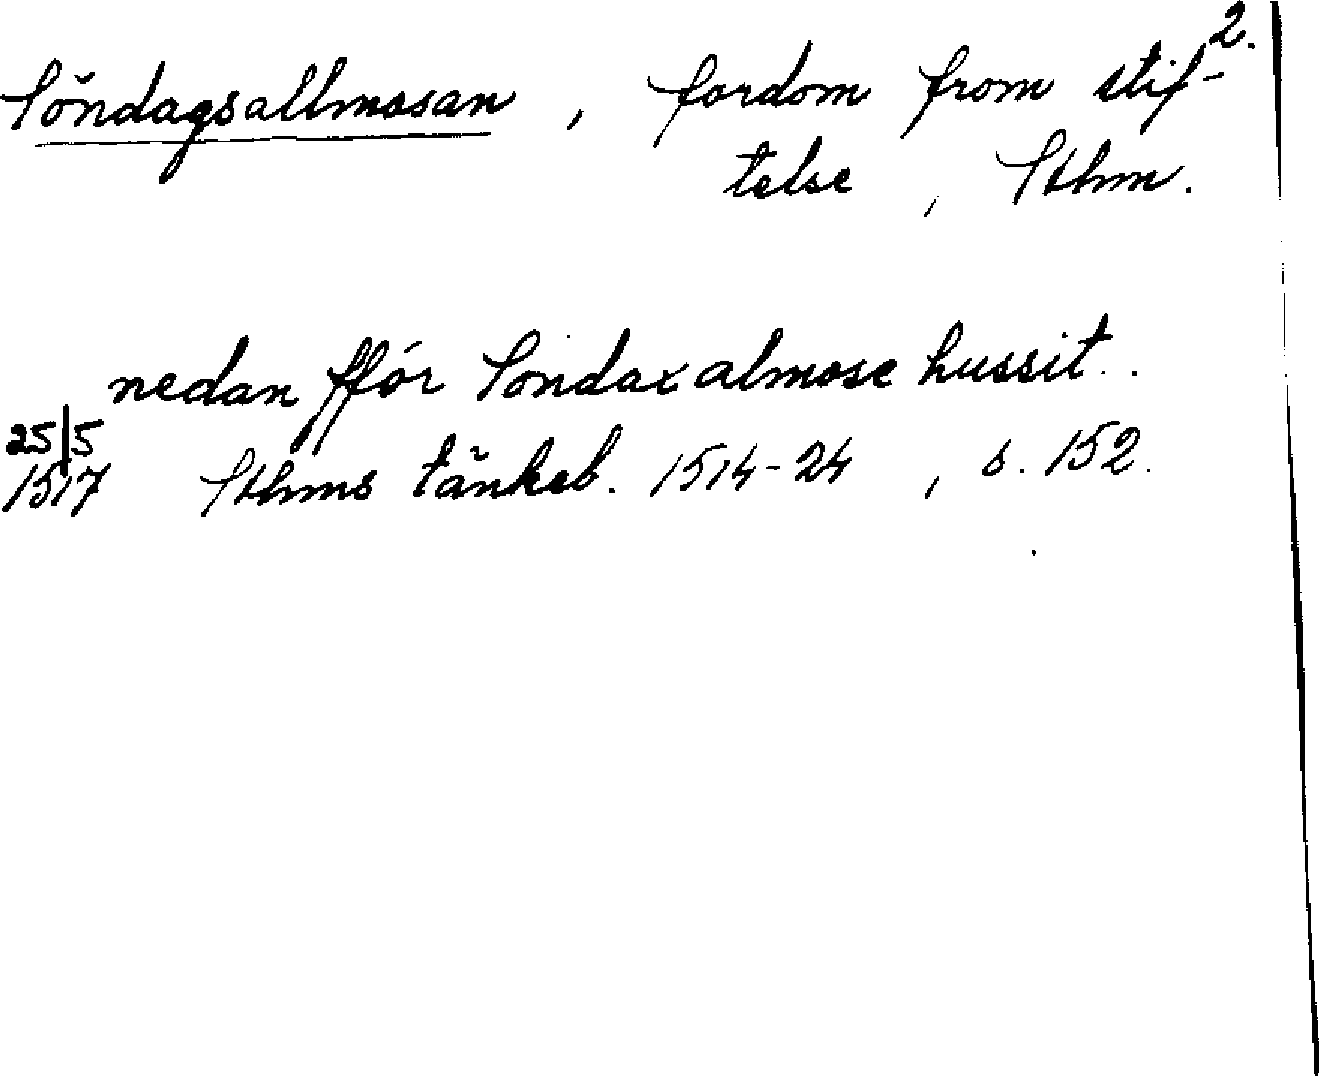 2.
Söndagsallmosan, fordom from stif-
telse, Sthm.
nedan fför Söndax almose hussit..
25/5
1517 Sthms tänkeb. 1514-24, s. 152.